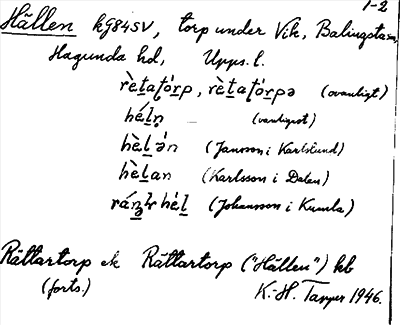 1-2
Hällen kg845V, torp under Vik, Balingsta sn,
Hagunda hd, Upps. l.
rètatórp, rètatórpə (ovanligt)
héln̥ (vanligast)
hèlən (Jansson i Karlslund)
hèlan (Karlsson i Dalen)
(Johansson i Kumla)
Rättartorp ek Rättartorp ("Hällen") kb
(forts.) K.-H. Tapper 1946.